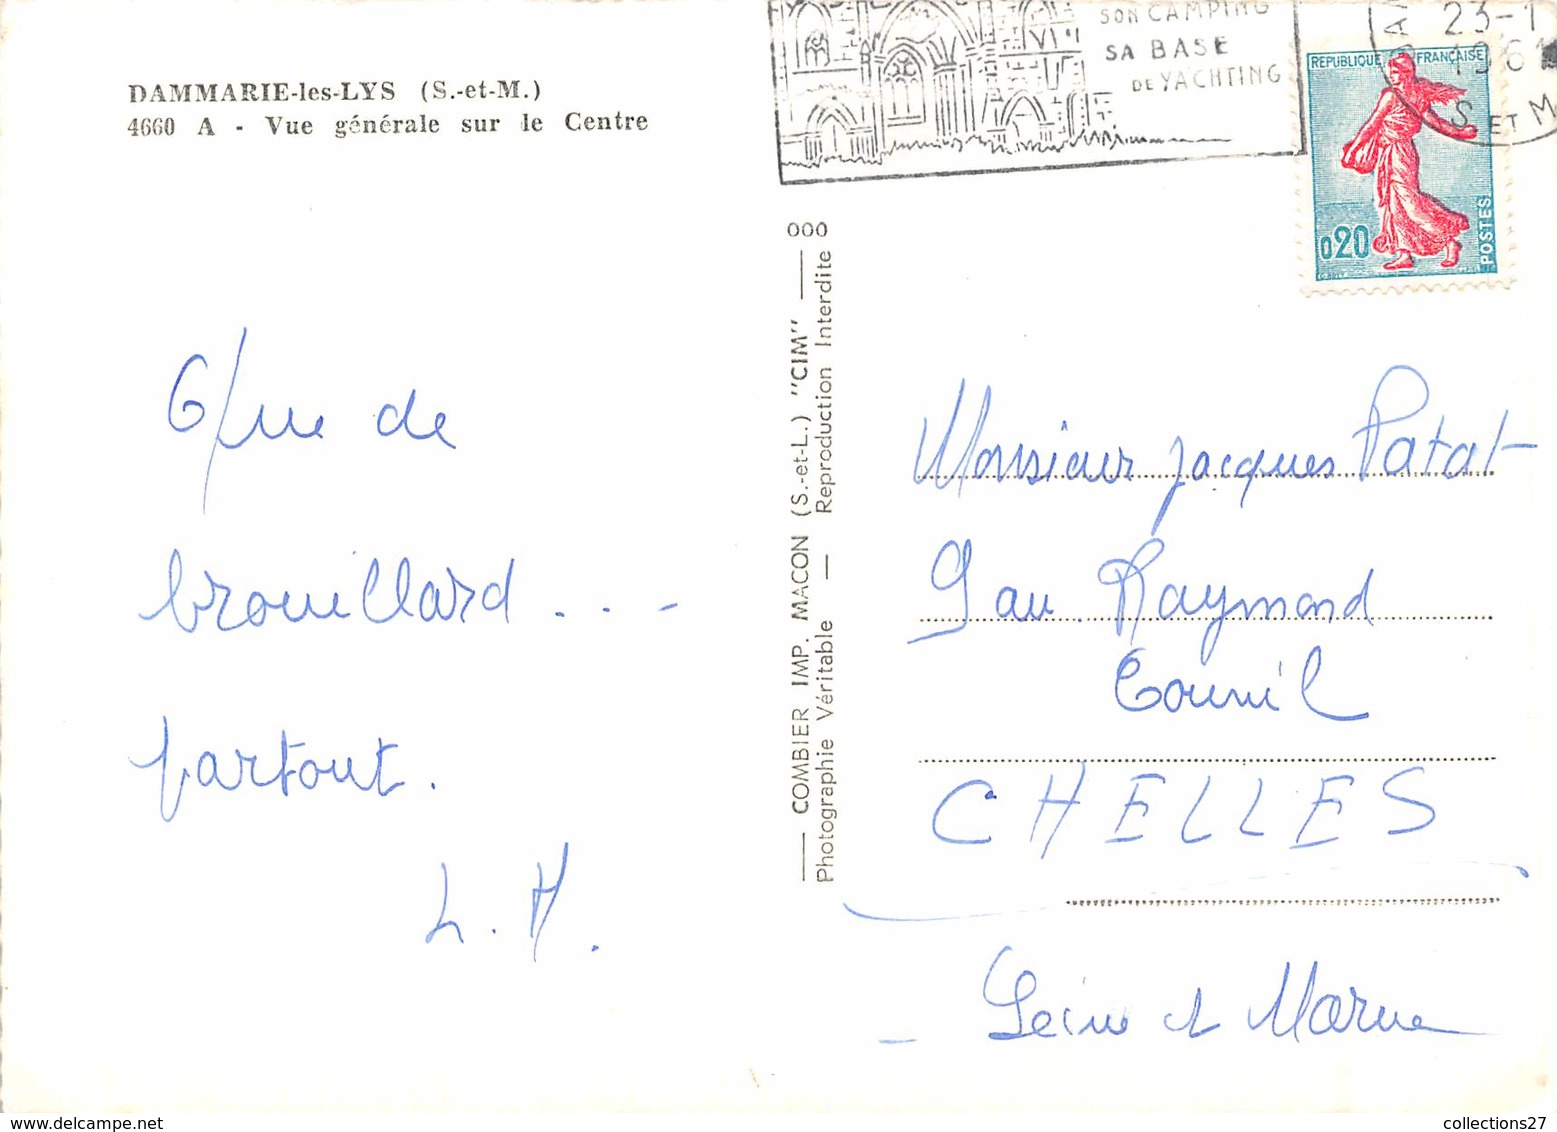 DAMMARIE-les-LYS (S.-et-M.)
4660 A - Vue générale sur le Centre
Que de
brouillard...
partout.
L. H.
SON CAMPING
SA BASE
DE YACHTING
23-1
1961
S. ET M
REPUBLIQUE FRANÇAISE
0,20
POSTES
000
COMBIER IMP. MACON (S.-et-L.) "CIM"
Photographie Véritable — Reproduction Interdite
Monsieur Jacques Patat
Raymond
CHELLES
Seine et Marne
collections27